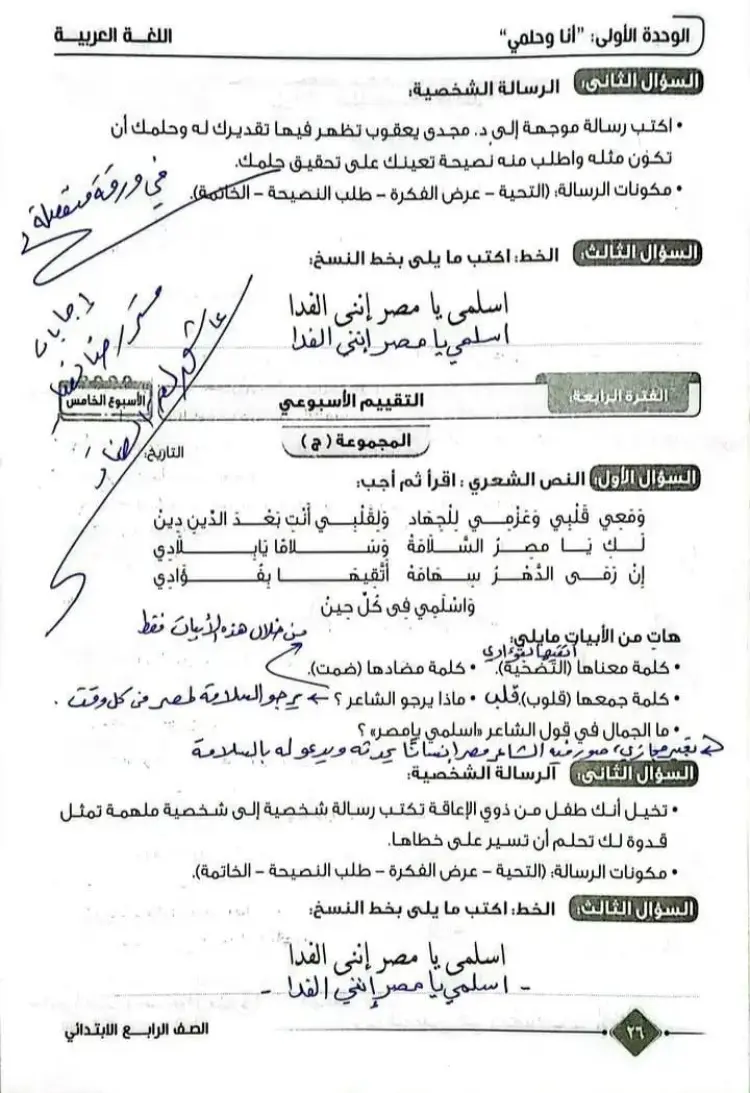 الوحدة الأولى: "أنا وحلمي"
اللغة العربية
السؤال الثانى: الرسالة الشخصية:
• اكتب رسالة موجهة إلى د. مجدى يعقوب تظهر فيها تقديرك له وحلمك أن
تكون مثله واطلب منه نصيحة تعينك على تحقيق حلمك.
• مكونات الرسالة: (التحية – عرض الفكرة – طلب النصيحة – الخاتمة).
في ورقة منفصلة
السؤال الثالث: الخط: اكتب ما يلى بخط النسخ:
اسلمى يا مصر إننى الفدا
اسلمي يا مصر إنني الفدا
إجابات
الفترة الرابعة:
التقييم الأسبوعي
الأسبوع الخامس
المجموعة (ج)
التاريخ:
السؤال الأول: النص الشعري : اقرأ ثم أجب:
وَمَعِي قَلْبِي وَعَزْمِي لِلْجِهَاد وَلِقَلْبِي أَنْتِ بَعْدَ الدِّينِ دِينُ
لَكِ يَا مِصْرُ السَّلَامَةُ وَسَلَامًا يَا بِلَادِي
إِنْ رَمَى الدَّهْرُ سِهَامَهُ أَتَّقِيهَا بِفُؤَادِي
وَاسْلَمِي فِى كُلِّ حِينُ
هات من الأبيات مايلي:
من خلال هذه الأبيات فقط
• كلمة معناها (التضحية). • كلمة مضادها (ضمت).
أتقيها بفؤادي
• كلمة جمعها (قلوب). قلب • ماذا يرجو الشاعر؟ ← يرجو السلامة لمصر فى كل وقت .
• ما الجمال في قول الشاعر «اسلمي يامصر»؟
تعبير مجازي، صور فيه الشاعر مصر إنسانًا يحدثه ويدعو له بالسلامة
السؤال الثانى: الرسالة الشخصية:
• تخيل أنك طفل من ذوي الإعاقة تكتب رسالة شخصية إلى شخصية ملهمة تمثل
قدوة لك تحلم أن تسير على خطاها.
• مكونات الرسالة: (التحية – عرض الفكرة – طلب النصيحة – الخاتمة).
السؤال الثالث: الخط: اكتب ما يلى بخط النسخ:
اسلمى يا مصر إننى الفدا
- اسلمي يا مصر إنني الفدا -
٢٦
الصف الرابع الابتدائي